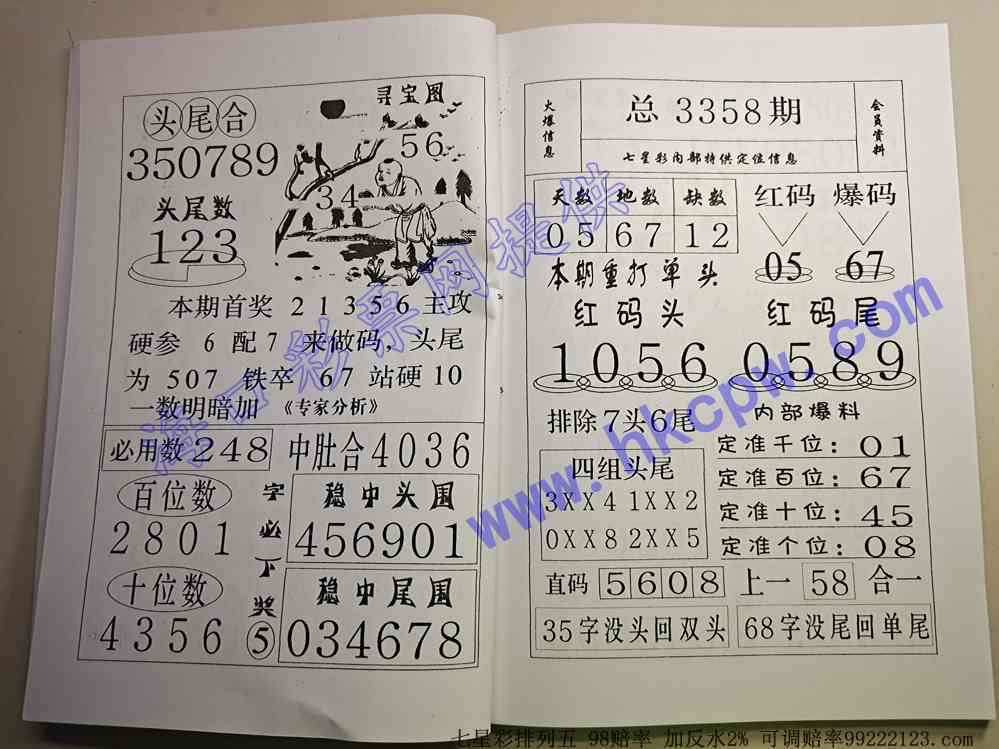 头尾合
350789
头尾数
123
寻宝图
56
34
本期首奖 21356 主攻
硬参 6 配 7 来做码，头尾
为 507 铁卒 67 站硬 10
一数明暗加 《专家分析》
必用数 248
中肚合 4036
百位数
2801
十位数
4356
字必下奖
5
稳中头围
456901
稳中尾围
034678
火爆信息
总 3358 期
七星彩内部特供定位信息
会员资料
天数 地数 缺数
05 67 12
红码 爆码
05 67
本期重打单头
红码头
1056
红码尾
0589
排除7头6尾
四组头尾
3XX4 1XX2
0XX8 2XX5
内部爆料
定准千位：01
定准百位：67
定准十位：45
定准个位：08
直码 5608 上一 58 合一
35字没头回双头
68字没尾回单尾
海口彩票网提供
www.hkcpw.com
七星彩排列五 98赔率 加反水2% 可调赔率99222123.com